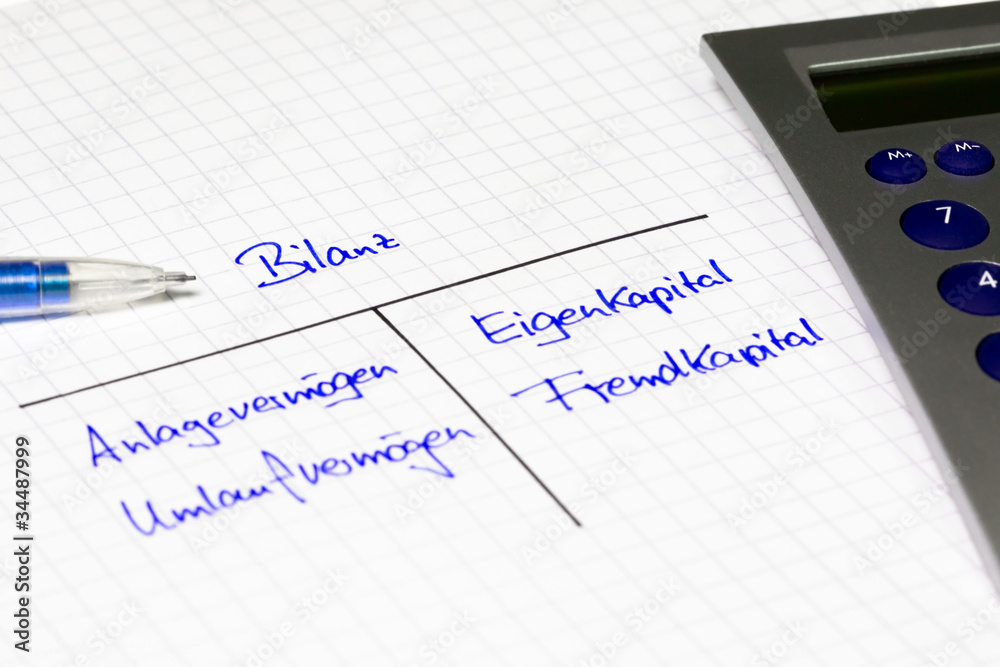 Bilanz
Anlagevermögen
Umlaufvermögen
Eigenkapital
Fremdkapital
M+
M-
7
4
Adobe Stock | #34487999